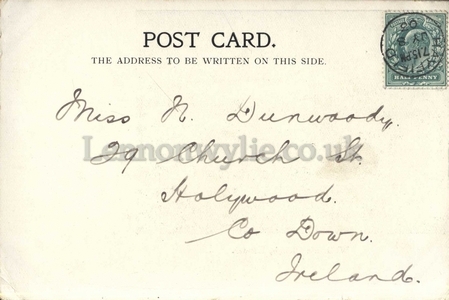 POST CARD.
THE ADDRESS TO BE WRITTEN ON THIS SIDE.
HALF PENNY
Miss N. Dunwoody
Lennonwylie.co.uk
29 Church St.
Holywood.
Co Down.
Ireland.